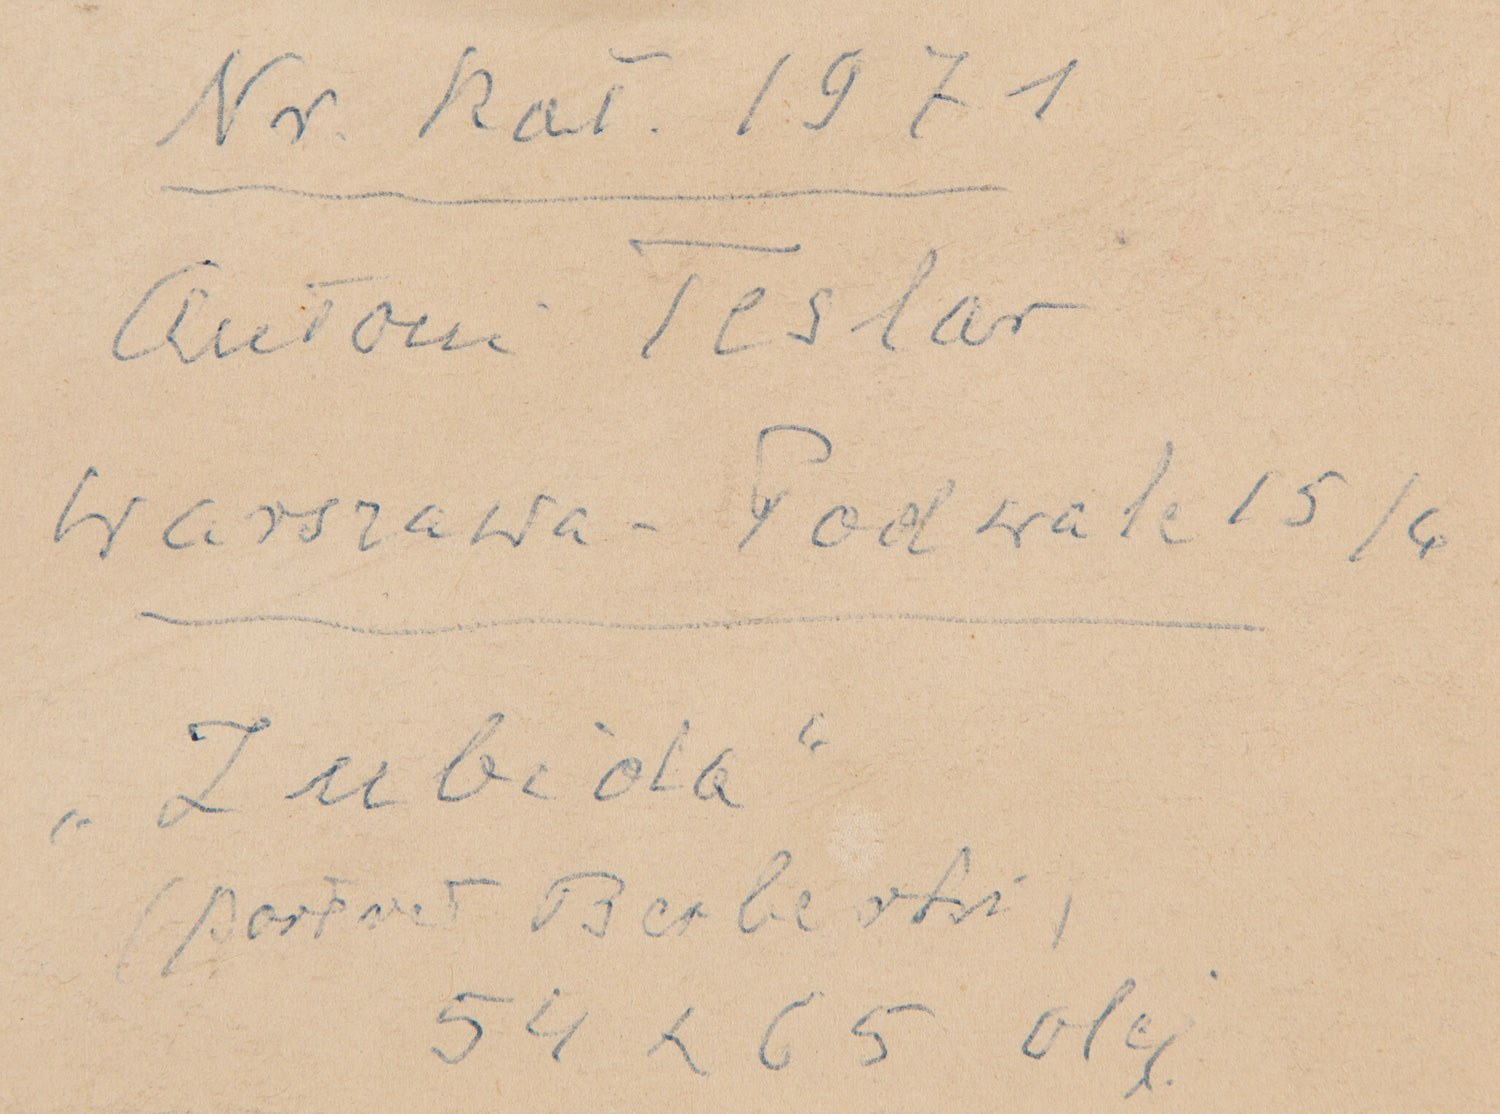 Nr. kat. 1971
Antoni Teslar
Warszawa - Podwale 15/4
„Zubida“
(portret Berberki)
54 x 65 olej.